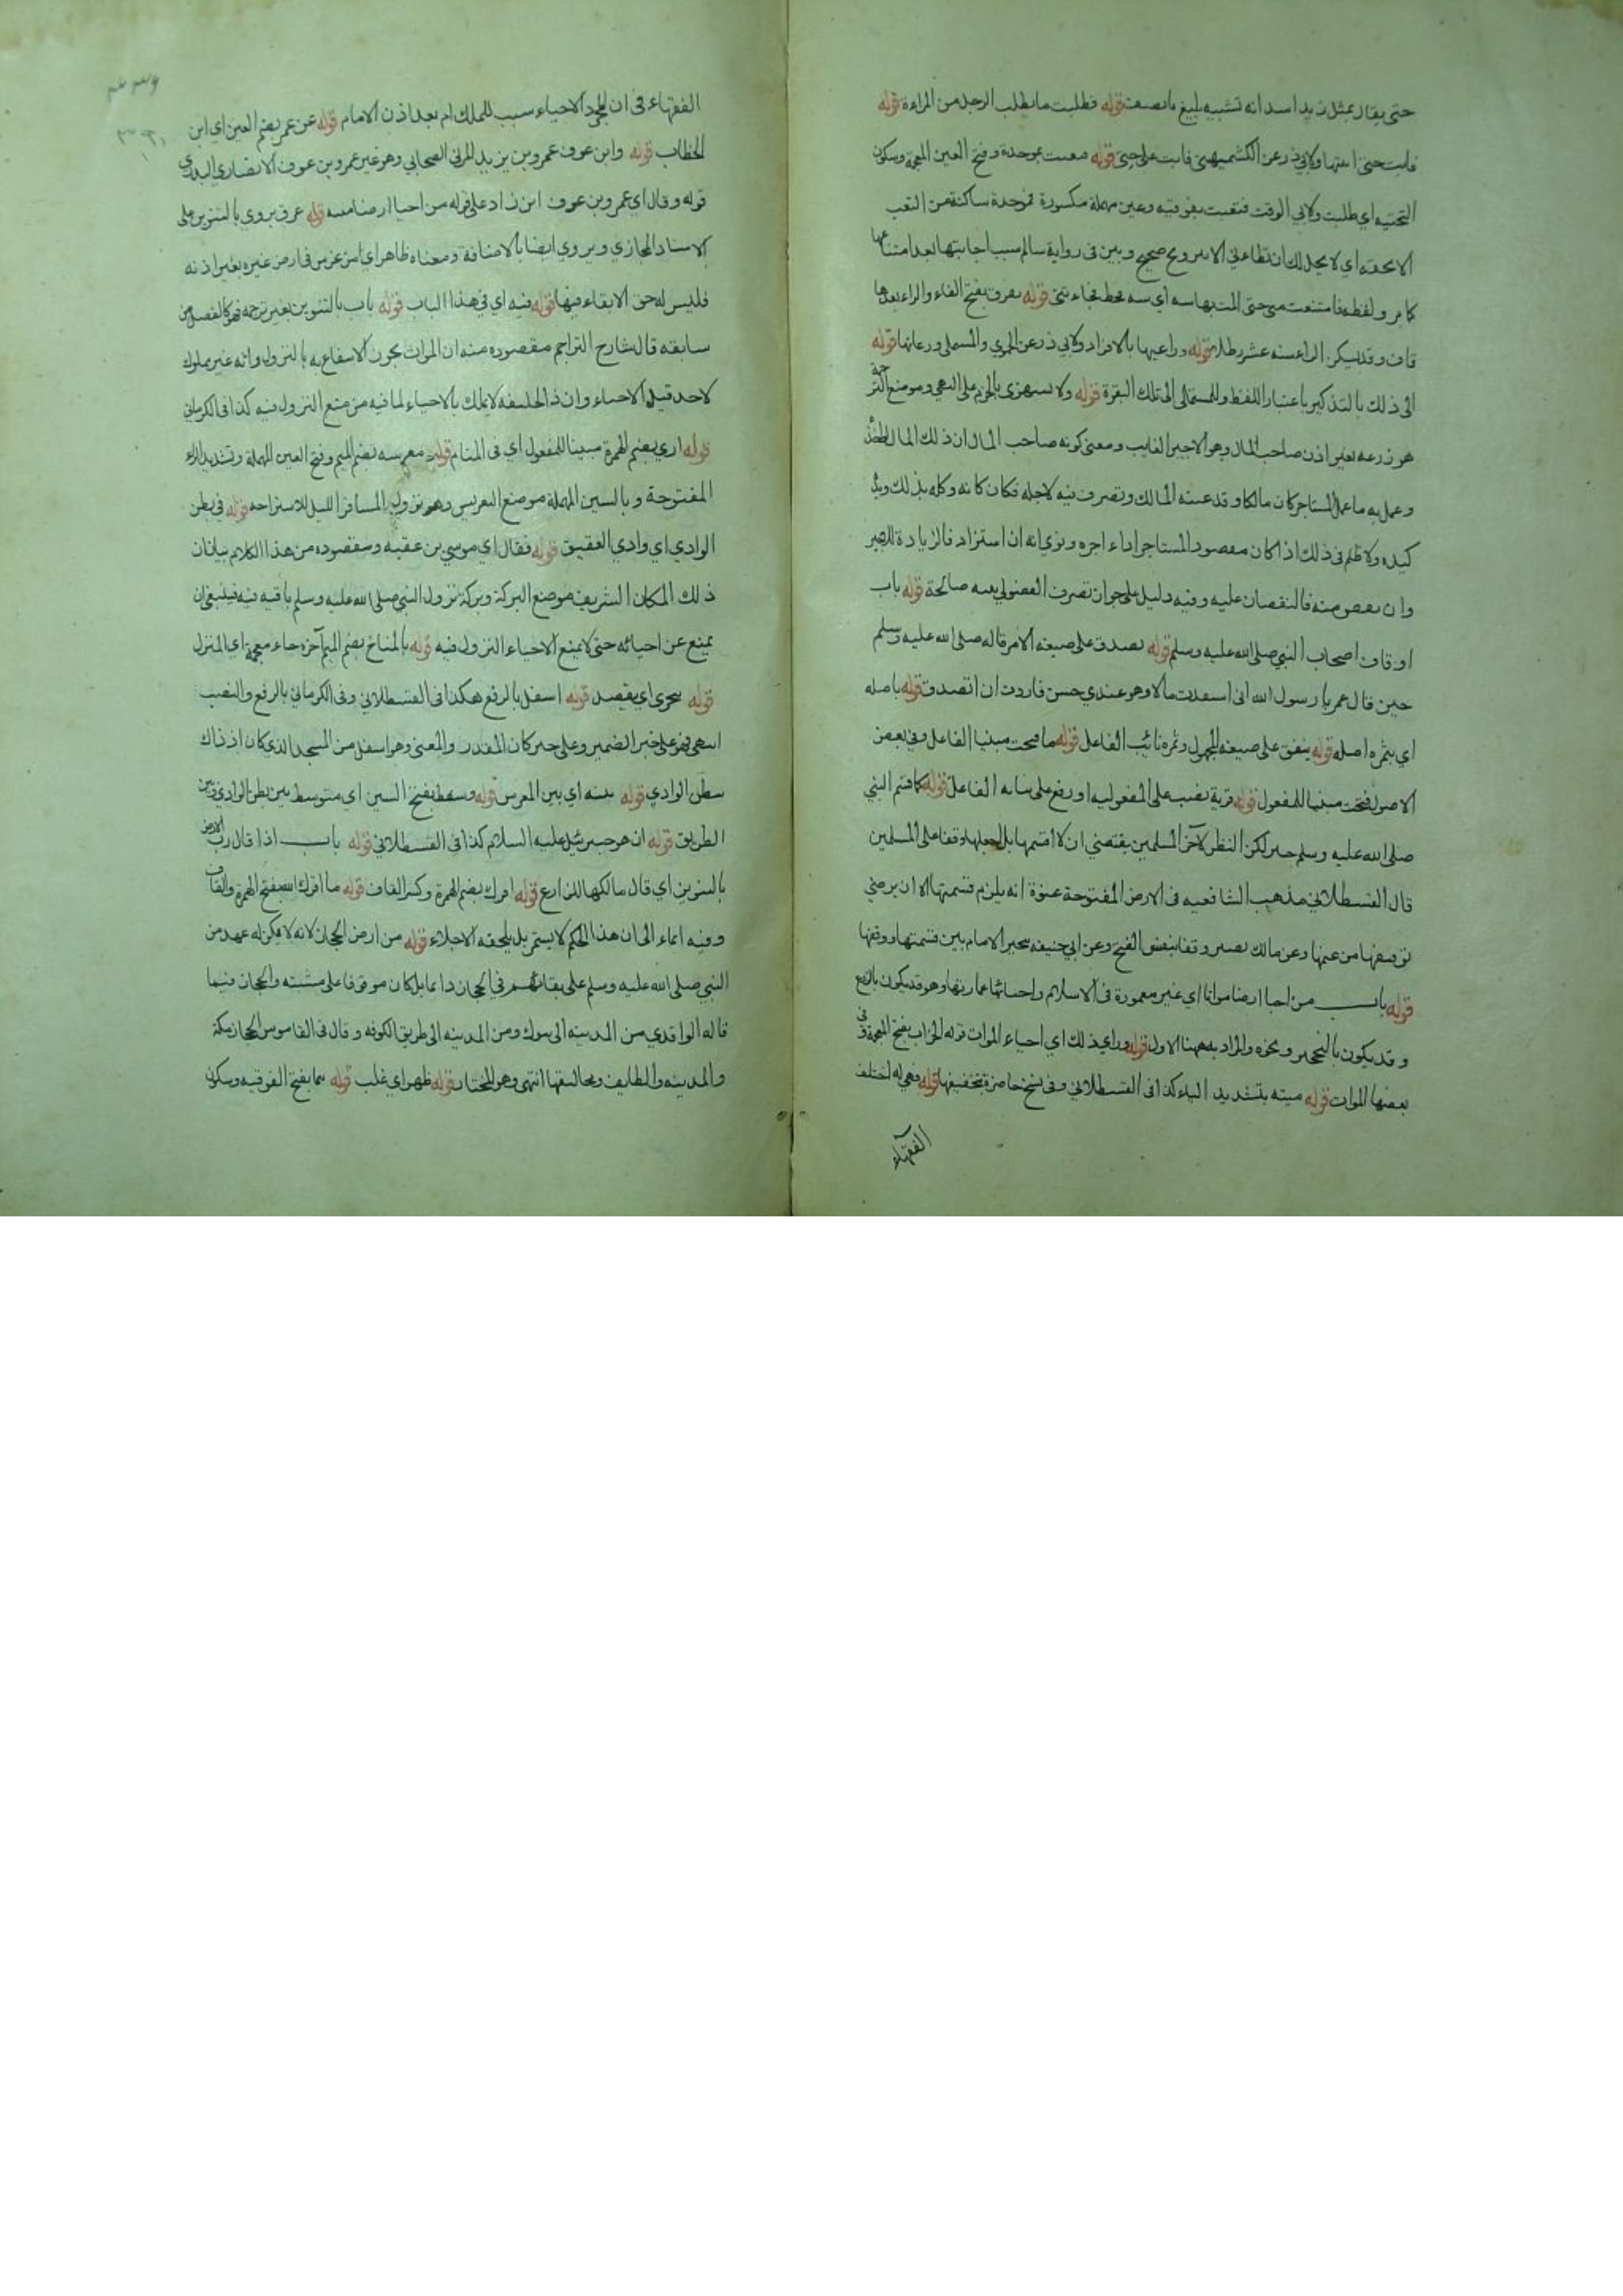 حتى يقال بمثل زيد اسد انه تشبيه بليغ قوله فطلبت ما يطلب الرجل من المراءة قوله
فابت حتى اتيتها ولابي ذر عن الكشميهني فابت على حتى قوله فبغيت بموحدة وفتح الغين المعجمة وسكون
التحتية اي طلبت ولابي الوقت فتعبت بفوقيه وعين مهملة مكسورة فموحدة ساكنة من التعب
الا بحقه اي لا يحل لك ان تطاءني الا بتزويج صحيح وبين في رواية سالم سبب اجابتها بعد امتناعها
كما مر ولفظه فامتنعت مني حتى المت بها سنة اي سنة قحط فجاءتني قوله بفرق بفتح الفاء والراء بعدها
قاف وقد يسكن الراء ستة عشر رطلا قوله وراعيها بالافراد ولابي ذر عن الحموي والمستملي ورعاتها قوله
الى ذلك بالتذكير باعتبار اللفظ وللمستملي الى تلك البقرة قوله ولا تستهزئ بالجزم على النهي وموضع الترجمة
هو زرعه بغير اذن صاحب المال وهو الاجير الغايب ومعنى كونه صاحب المال ان ذلك المال
وعمل به ما عمل المستاجر كان مالكا وقد عينه المالك وتصرف فيه لاجله فكان كانه وكله بذلك
كيده ولا ظلم في ذلك اذا كان مقصود المستاجر اداء اجره ونوى انه ان استزاد فالزيادة للاجير
وان نقص منه فالنقصان عليه وفيه دليل على جواز تصرف الفضولي بنية صالحة قوله باب
اوقاف اصحاب النبي صلى الله عليه وسلم قوله تصدق على صيغة الامر قاله صلى الله عليه وسلم
حين قال عمر يا رسول الله اني استفدت مالا وهو عندي حسن فاردت ان اتصدق قوله باصله
اي بثمره اصله قوله ينفق على صيغة المجهول وثمره نائب الفاعل قوله ما فتحت مبنيا للفاعل وفي بعض
الاصول فتحت مبنيا للمفعول قوله قرية نصب على المفعوليه او رفع على نيابه الفاعل قوله كما قسم النبي
صلى الله عليه وسلم خيبر لكن النظر لآخر المسلمين يقتضي ان لا اقسمها بل اجعلها وقفا على المسلمين
قال القسطلاني مذهب الشافعيه في الارض المفتوحة عنوة انه يلزم قسمتها الا ان يرضى
بوقفها من غنمها وعن مالك تصير وقفا بنفس الفتح وعن ابي حنيفه يتخير الامام بين قسمتها ووقفها
قوله باب من احيا ارضا مواتا اي غير معمورة في الاسلام واحيائها عمارتها وهو قد يكون بالزرع
وقد يكون بالتحجير ونحوه والمراد به ههنا الاول قوله وراى ذلك اي احياء الموات قوله الخراب بفتح المعجمة وفي
بعضها الموات قوله ميتة بتشديد الياء كذا في القسطلاني وفي نسخ حاضرة بتخفيفها قوله فهي له اختلف
الفقهاء
الفقهاء في ان مجرد الاحياء سبب للملك ام بعد اذن الامام قوله عن عمر بضم العين اي ابن
الخطاب قوله وابن عوف عمرو بن يزيد المزني الصحابي وهو غير عمرو بن عوف الانصاري البدري
قوله وقال اي عمرو بن عوف ابن زاد على قوله من احيا ارضا ميتة قوله عرق يروى بالتنوين على
الاسناد المجازي ويروي ايضا بالاضافة ومعناه ظاهر اي من غرس في ارض غيره بغير اذنه
فليس له حق الابقاء فيها قوله فيه اي في هذا الباب قوله باب بالتنوين بغير ترجمه فهو كالفصل من
سابقه قال شارح التراجم مقصوده منه ان الموات يجوز الانتفاع به بالنزول وانه غير مملوك
لاحد قبل الاحياء وان ذا الحليفه لا يملك بالاحياء لما فيه من منع النزول فيه كذا في الكرماني
قوله اري بضم الهمزة مبينا للمفعول اي في المنام قوله معرسه بضم الميم وفتح العين المهملة وتشديد الراء
المفتوحة وبالسين المهملة موضع التعريس وهو نزول المسافر الليل للاستراحة قوله في بطن
الوادي اي وادي العقيق قوله فقال اي موسى بن عقبه ومقصوده من هذا الكلام بيان ان
ذلك المكان الشريف موضع البركة وبركة نزول النبي صلى الله عليه وسلم باقيه فيه فينبغي ان
يمنع عن احيائه حتى لا يمنع الاحياء النزول فيه قوله بالمناخ بضم الميم آخره خاء معجمة اي المنزل
قوله يتحرى اي يقصد قوله اسفل بالرفع هكذا في القسطلاني وفي الكرماني بالرفع والنصب
انتهى فهو على خبر الضمير وعلى خبر كان المقدر والمعنى وهو اسفل من المسجد الذي كان اذ ذاك
ببطن الوادي قوله بينه اي بين المعرس قوله وسط بفتح السين اي متوسط بين بطن الوادي وبين
الطريق قوله ان هو جبرئيل عليه السلام كذا في القسطلاني قوله باب اذا قال رب الارض
بالتنوين اي قال مالكها للزارع قوله اقرك بضم الهمزة وكسر القاف قوله ما اقرك الله بفتح الهمزة والقاف
وفيه ايماء الى ان هذا الحكم لا يستمر بل يلحقه الاجلاء قوله من ارض الحجاز لانه لا يكن له عهد من
النبي صلى الله عليه وسلم على بقائهم في الحجاز دائما بل كان موقوفا على مشيته والحجاز فيما
قاله الواقدي من المدينه الى تبوك ومن المدينه الى طريق الكوفه وقال في القاموس الحجاز مكة
والمدينه والطايف ومخاليفها انتهى وهو المختار قوله ظهر اي غلب قوله تيما بفتح الفوقيه وسكون